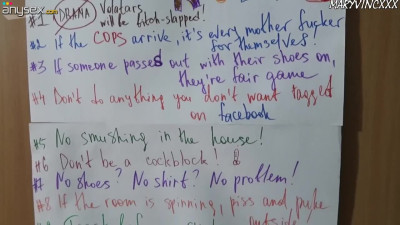 anysex.com
MARYVINCXXX
#1 (DRAMA) Volators
will be bitch-slapped!
#2 If the COPS arrive, it's every mother fucker
for themselves!
#3 If someone passes out with their shoes on,
they're fair game
#4 Don't do anything you don't want tagged
on facebook
#5 No smushing in the house!
#6 Don't be a cockblock!
#7 No shoes? No shirt? No problem!
#8 If the room is spinning, piss and puke
outside